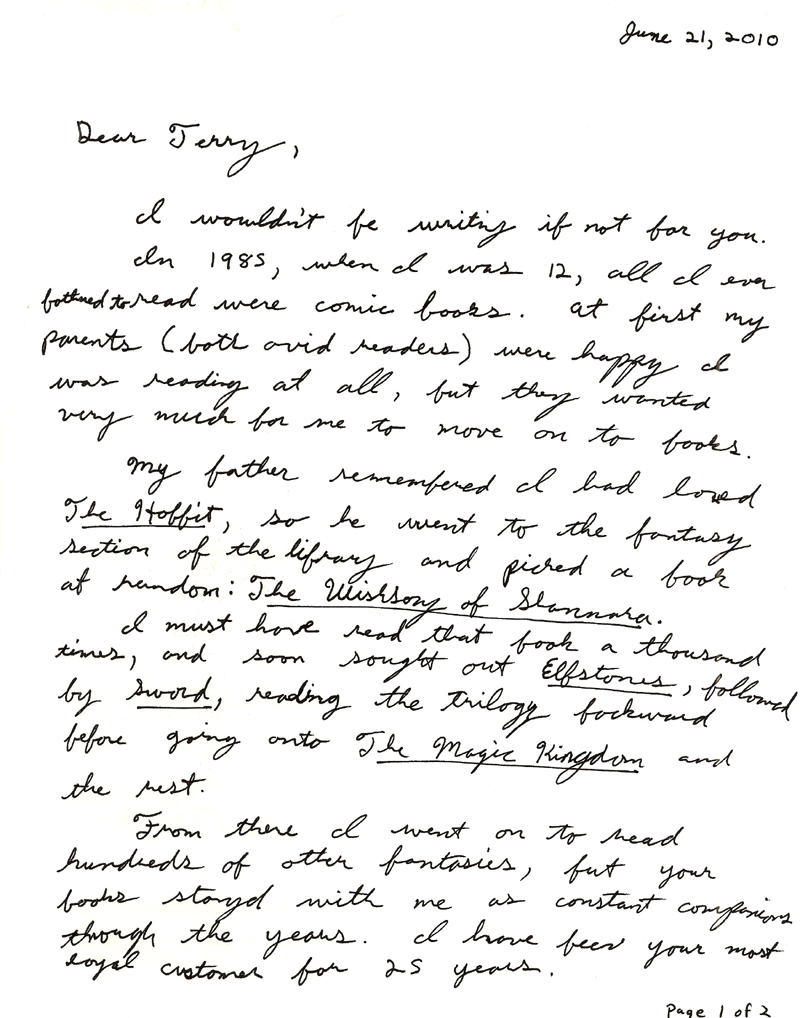 June 21, 2010
Dear Terry,
I wouldn't be writing if not for you.
In 1985, when I was 12, all I ever
bothered to read were comic books. At first my
parents (both avid readers) were happy I
was reading at all, but they wanted
very much for me to move on to books.
My father remembered I had loved
The Hobbit, so he went to the fantasy
section of the library and picked a book
at random: The Wishsong of Shannara.
I must have read that book a thousand
times, and soon sought out Elfstones, followed
by Sword, reading the trilogy backward
before going onto The Magic Kingdom and
the rest.
From there I went on to read
hundreds of other fantasies, but your
books stayed with me as constant companions
through the years. I have been your most
loyal customer for 25 years.
Page 1 of 2